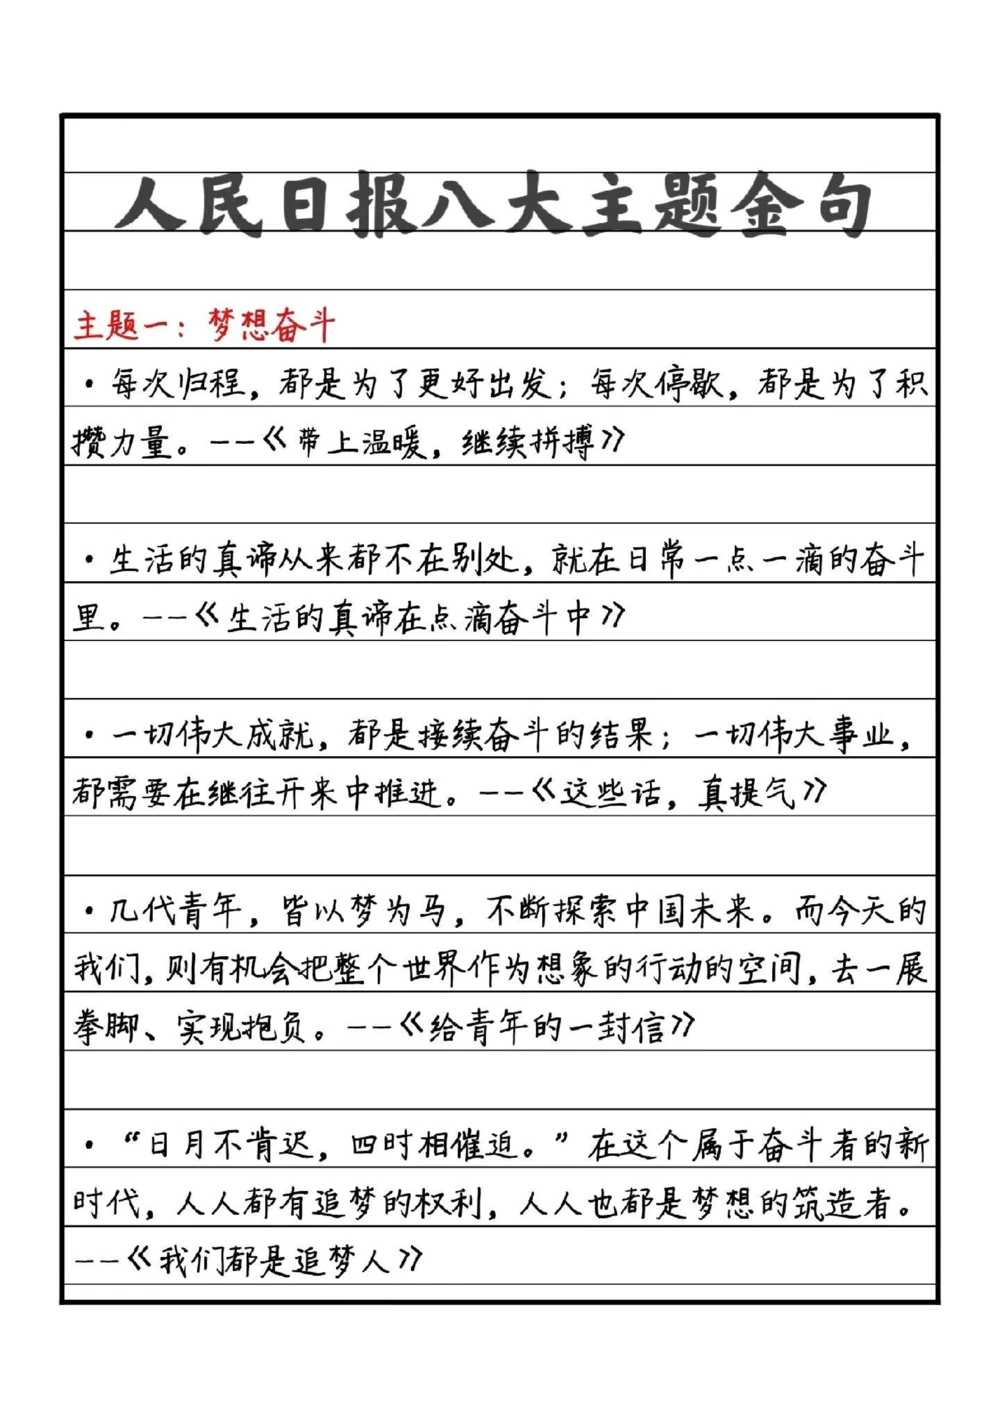 人民日报八大主题金句
主题一：梦想奋斗
·每次归程，都是为了更好出发；每次停歇，都是为了积
攒力量。--《带上温暖，继续拼搏》
·生活的真谛从来都不在别处，就在日常一点一滴的奋斗
里。--《生活的真谛在点滴奋斗中》
·一切伟大成就，都是接续奋斗的结果；一切伟大事业，
都需要在继往开来中推进。--《这些话，真提气》
·几代青年，皆以梦为马，不断探索中国未来。而今天的
我们，则有机会把整个世界作为想象的行动的空间，去一展
拳脚、实现抱负。--《给青年的一封信》
·“日月不肯迟，四时相催迫。”在这个属于奋斗者的新
时代，人人都有追梦的权利，人人也都是梦想的筑造者。
--《我们都是追梦人》